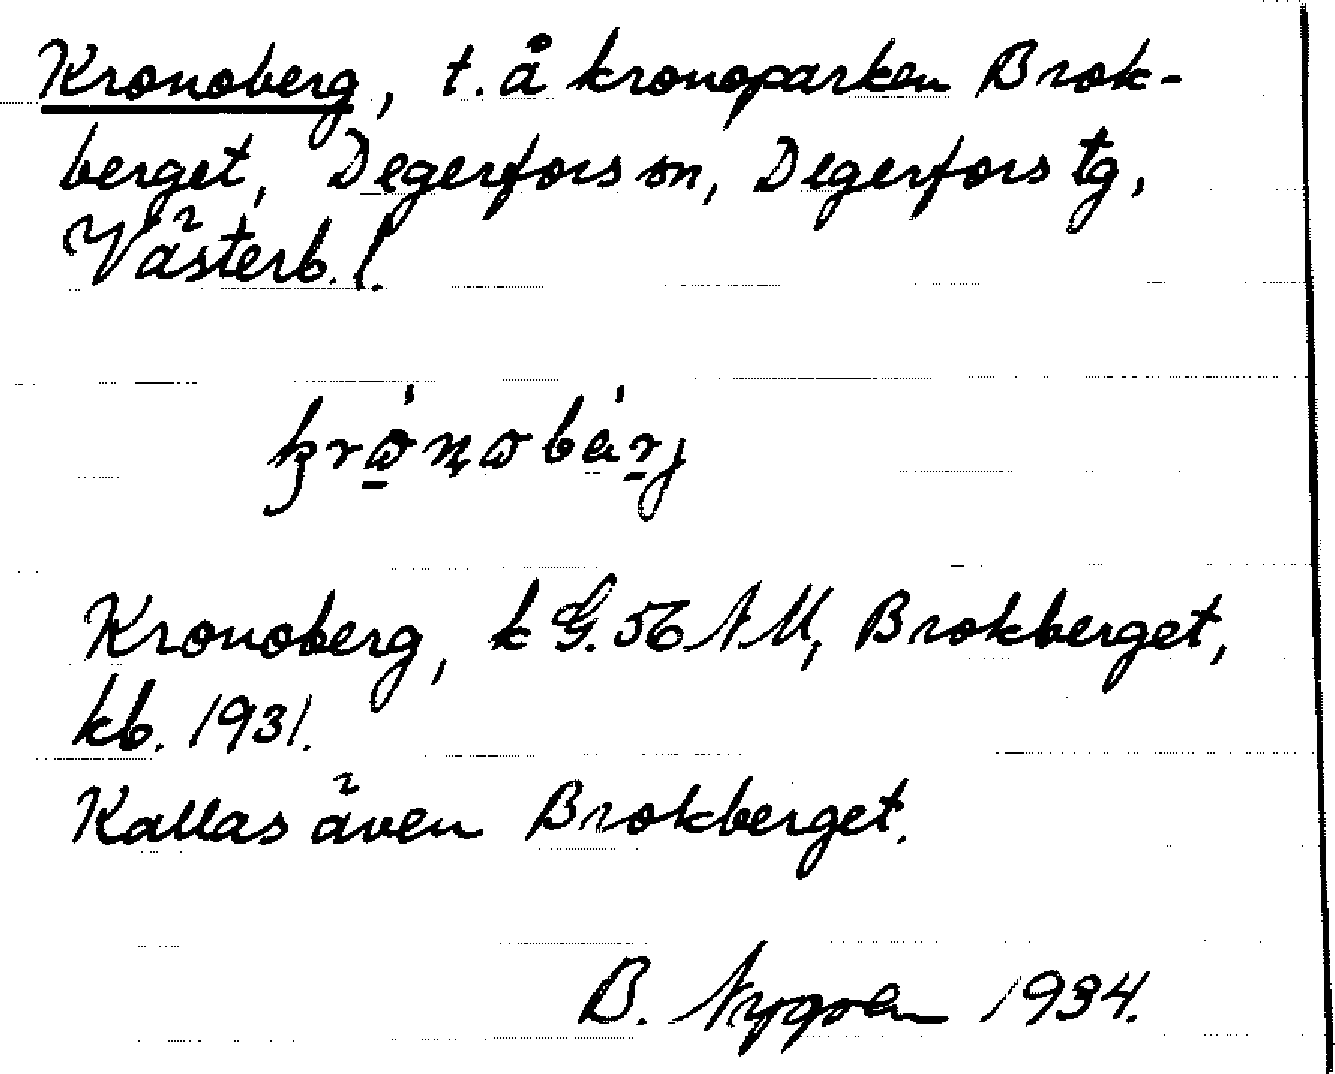 Kronoberg, t. å kronoparken Brok-
berget, Degerfors sn, Degerfors tg,
Västerb. l.
Kronoberg, k G. 56 NM, Brokberget,
kb. 1931.
Kallas även Brokberget.
B. Nygren 1934.